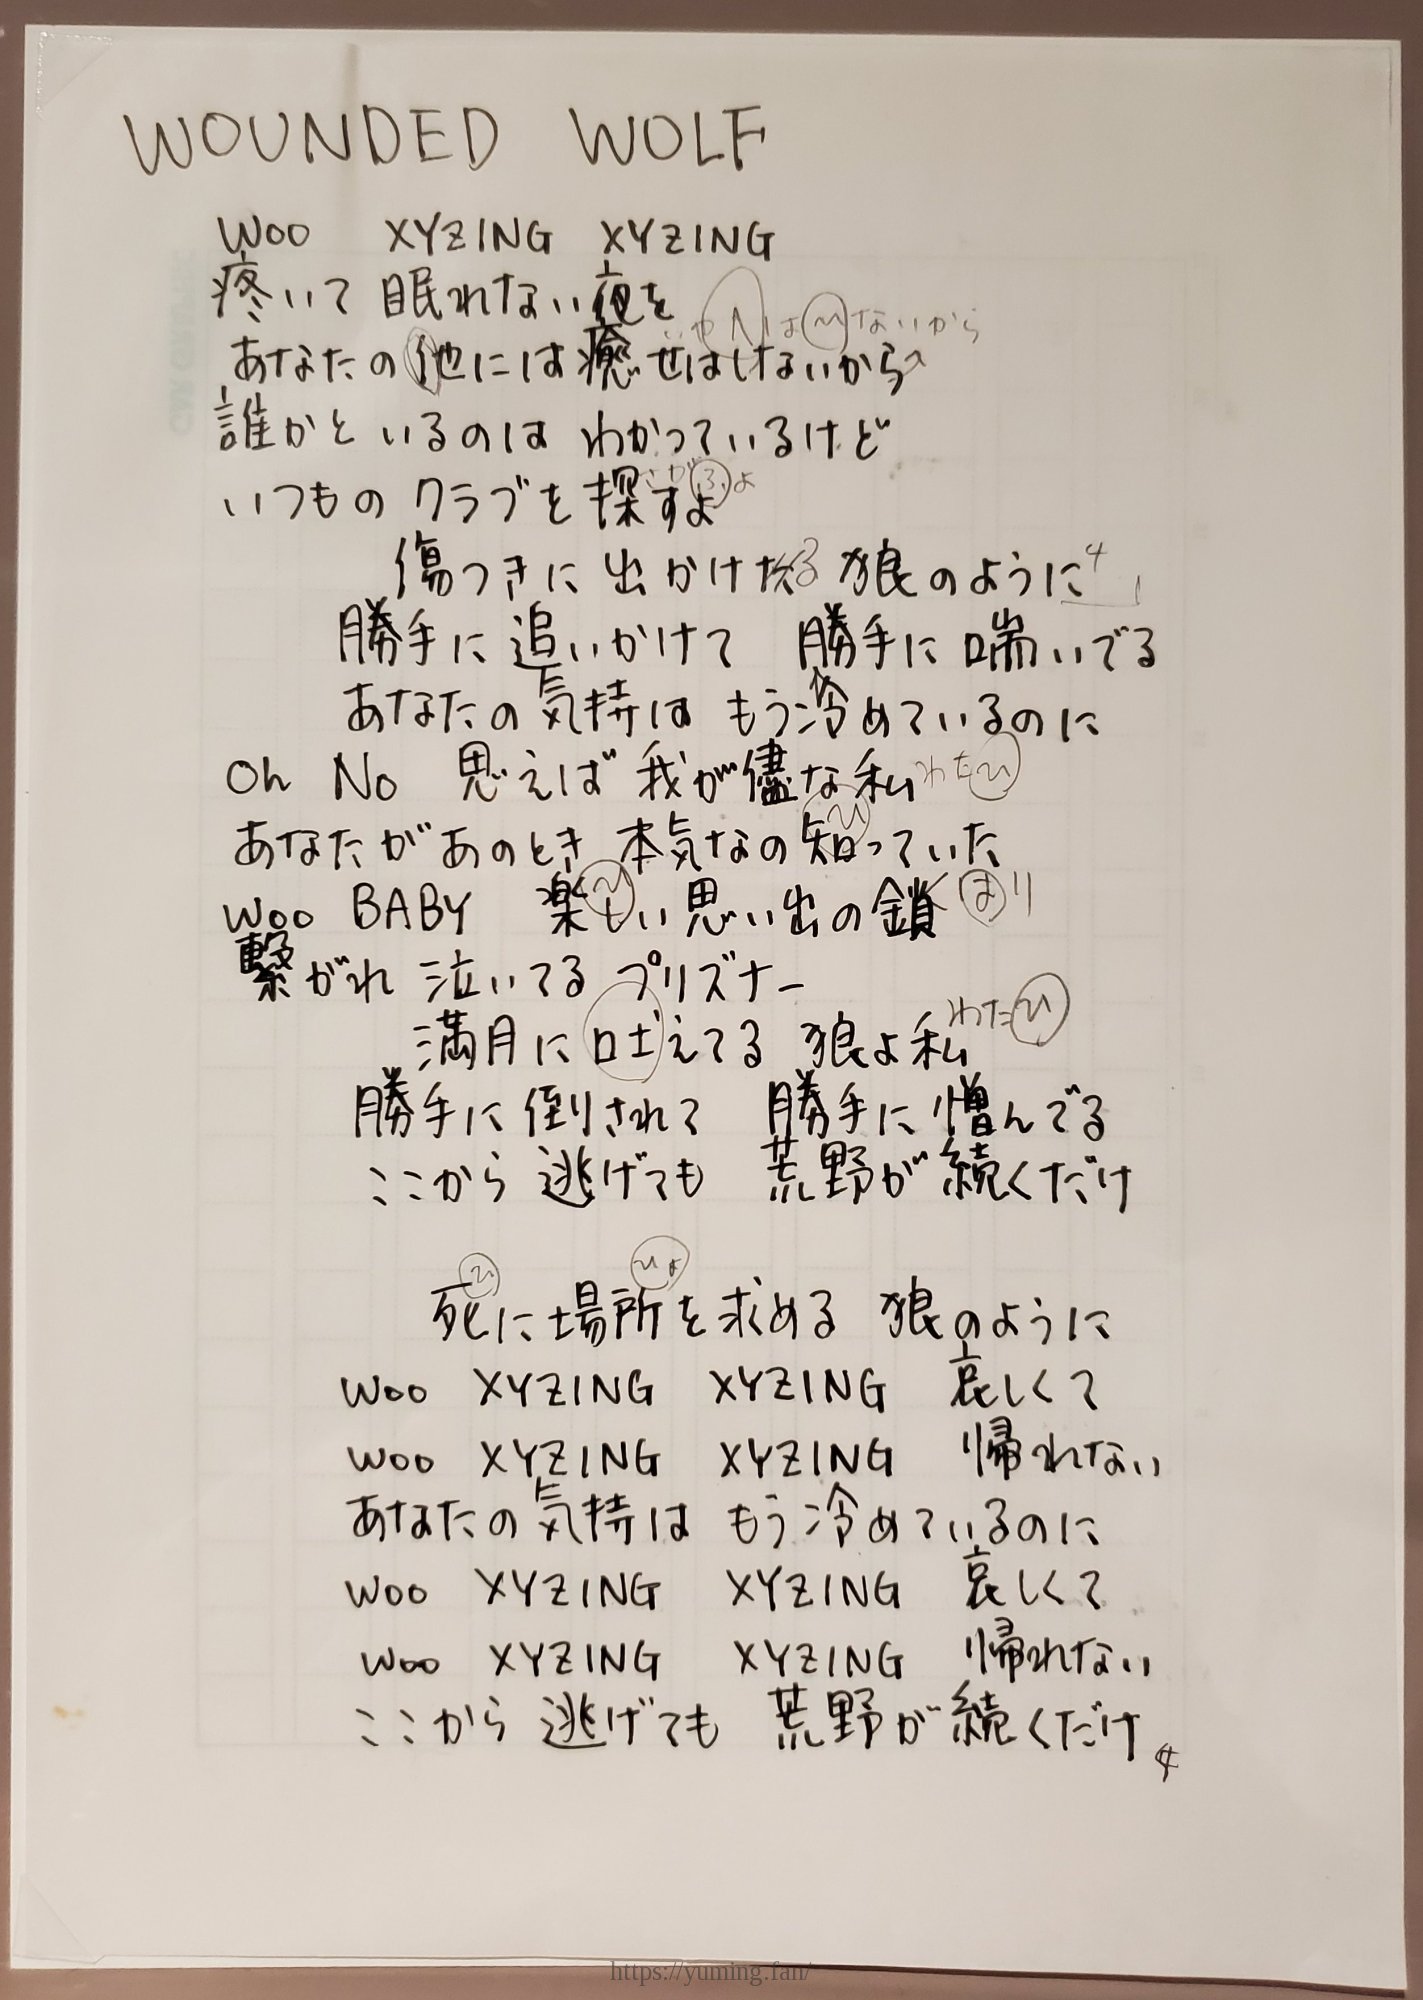 WOUNDED WOLF
Woo XYZING XYZING
疼いて 眠れない夜を
あなたの他には癒せはしないから
誰かといるのは わかっているけど
いつもの クラブを 探すよ
傷つきに 出かける 狼のように
勝手に 追いかけて 勝手に 喘いでる
あなたの気持は もう冷めているのに
Oh No 思えば 我が儘な私 わたひ
あなたがあのとき 本気なの知っていた
Woo BABY 楽しい 思い出の鎖
繋がれ 泣いてる プリズナー
わたひ
満月に 吐えてる 狼よ私
勝手に 倒されて 勝手に 憎んでる
ここから 逃げても 荒野が 続くだけ
ひ ひょ
死に場所を求める 狼のように
Woo XYZING XYZING 哀しくて
Woo XYZING XYZING 帰れない
あなたの気持は もう冷めているのに
Woo XYZING XYZING 哀しくて
Woo XYZING XYZING 帰れない
ここから 逃げても 荒野が 続くだけ
https://yuming.fan/